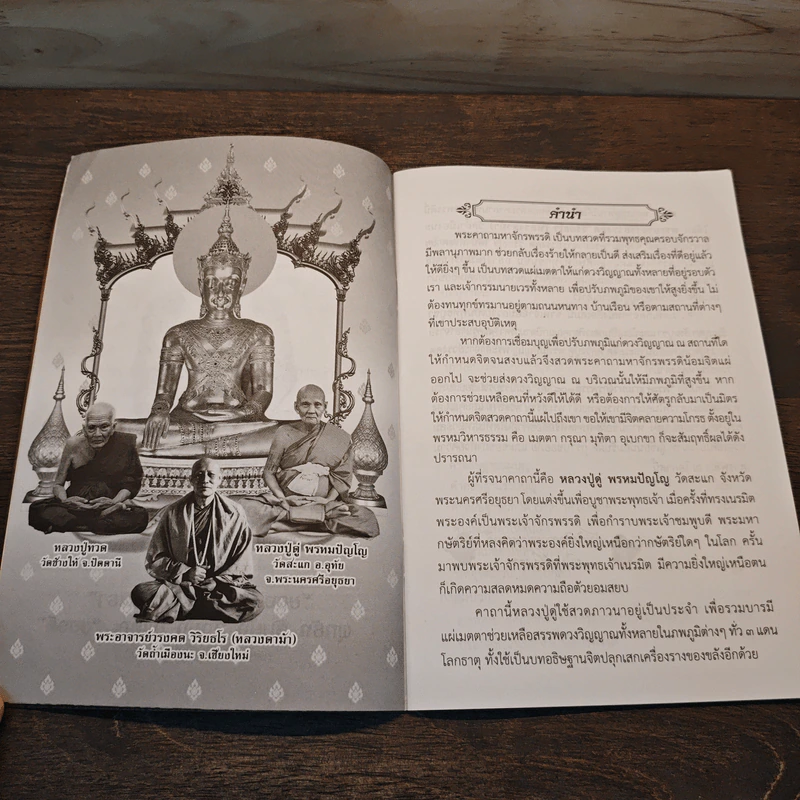 หลวงปู่ทวด
วัดช้างให้ จ.ปัตตานี
หลวงปู่ดู่ พรหมปัญโญ
วัดสะแก อ.อุทัย
จ.พระนครศรีอยุธยา
พระอาจารย์วรงคต วิริยธโร (หลวงตาม้า)
วัดถ้ำเมืองนะ จ.เชียงใหม่
คำนำ
พระคาถามหาจักรพรรดิ เป็นบทสวดที่รวมพุทธคุณครอบจักรวาล
มีพลานุภาพมาก ช่วยกลับเรื่องร้ายให้กลายเป็นดี ส่งเสริมเรื่องที่ดีอยู่แล้ว
ให้ดียิ่งๆ ขึ้น เป็นบทสวดแผ่เมตตาให้แก่ดวงวิญญาณทั้งหลายที่อยู่รอบตัว
เรา และเจ้ากรรมนายเวรทั้งหลาย เพื่อปรับภพภูมิของเขาให้สูงยิ่งขึ้น ไม่
ต้องทนทุกข์ทรมานอยู่ตามถนนหนทาง บ้านเรือน หรือตามสถานที่ต่างๆ
ที่เขาประสบอุบัติเหตุ
หากต้องการเชื่อมบุญเพื่อปรับภพภูมิแก่ดวงวิญญาณ ณ สถานที่ใด
ให้กำหนดจิตจนสงบแล้วจึงสวดพระคาถามหาจักรพรรดิน้อมจิตแผ่
ออกไป จะช่วยส่งดวงวิญญาณ ณ บริเวณนั้นให้มีภพภูมิที่สูงขึ้น หาก
ต้องการช่วยเหลือคนที่หวังดีให้ได้ดี หรือต้องการให้ศัตรูกลับมาเป็นมิตร
ให้กำหนดจิตสวดคาถานี้แผ่ไปถึงเขา ขอให้เขามีจิตคลายความโกรธ ตั้งอยู่ใน
พรหมวิหารธรรม คือ เมตตา กรุณา มุทิตา อุเบกขา ก็จะสัมฤทธิ์ผลได้ดัง
ปรารถนา
ผู้ที่รจนาคาถานี้คือ หลวงปู่ดู่ พรหมปัญโญ วัดสะแก จังหวัด
พระนครศรีอยุธยา โดยแต่งขึ้นเพื่อบูชาพระพุทธเจ้า เมื่อครั้งที่ทรงเนรมิต
พระองค์เป็นพระเจ้าจักรพรรดิ เพื่อกำราบพระเจ้าชมพูบดี พระมหา
กษัตริย์ที่หลงคิดว่าพระองค์ยิ่งใหญ่เหนือกว่ากษัตริย์ใดๆ ในโลก ครั้น
มาพบพระเจ้าจักรพรรดิที่พระพุทธเจ้าเนรมิต มีความยิ่งใหญ่เหนือตน
ก็เกิดความสลดหมดความถือตัวยอมสยบ
คาถานี้หลวงปู่ดู่ใช้สวดภาวนาอยู่เป็นประจำ เพื่อรวมบารมี
แผ่เมตตาช่วยเหลือสรรพดวงวิญญาณทั้งหลายในภพภูมิต่างๆ ทั่ว ๓ แดน
โลกธาตุ ทั้งใช้เป็นบทอธิษฐานจิตปลุกเสกเครื่องรางของขลังอีกด้วย